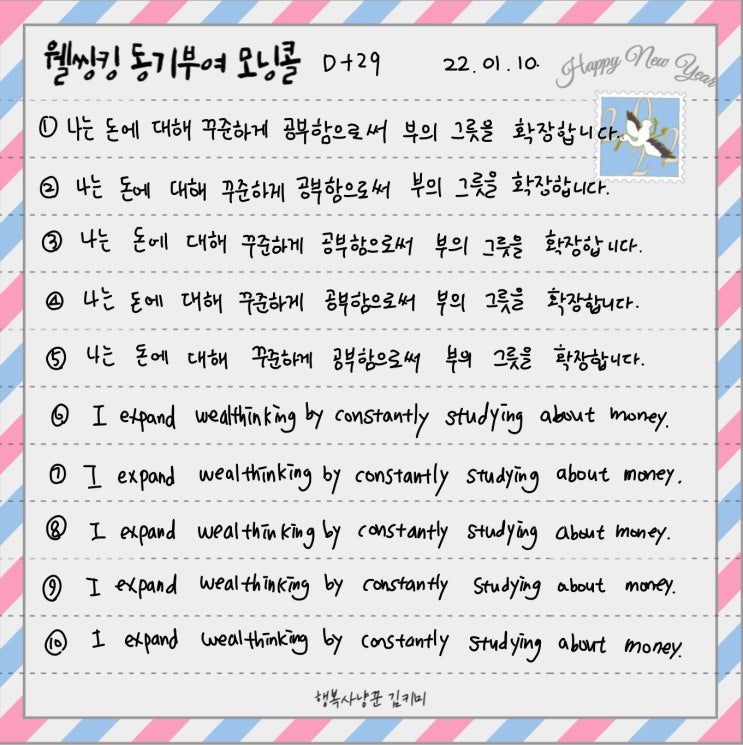 웰씽킹 동기부여 모닝콜 D+29 22.01.10. Happy New Year
① 나는 돈에 대해 꾸준하게 공부함으로써 부의 그릇을 확장합니다.
② 나는 돈에 대해 꾸준하게 공부함으로써 부의 그릇을 확장합니다.
③ 나는 돈에 대해 꾸준하게 공부함으로써 부의 그릇을 확장합니다.
④ 나는 돈에 대해 꾸준하게 공부함으로써 부의 그릇을 확장합니다.
⑤ 나는 돈에 대해 꾸준하게 공부함으로써 부의 그릇을 확장합니다.
⑥ I expand wealthinking by constantly studying about money.
⑦ I expand wealthinking by constantly studying about money.
⑧ I expand wealthinking by constantly studying about money.
⑨ I expand wealthinking by constantly studying about money.
⑩ I expand wealthinking by constantly studying about money.
행복사냥꾼 김키미